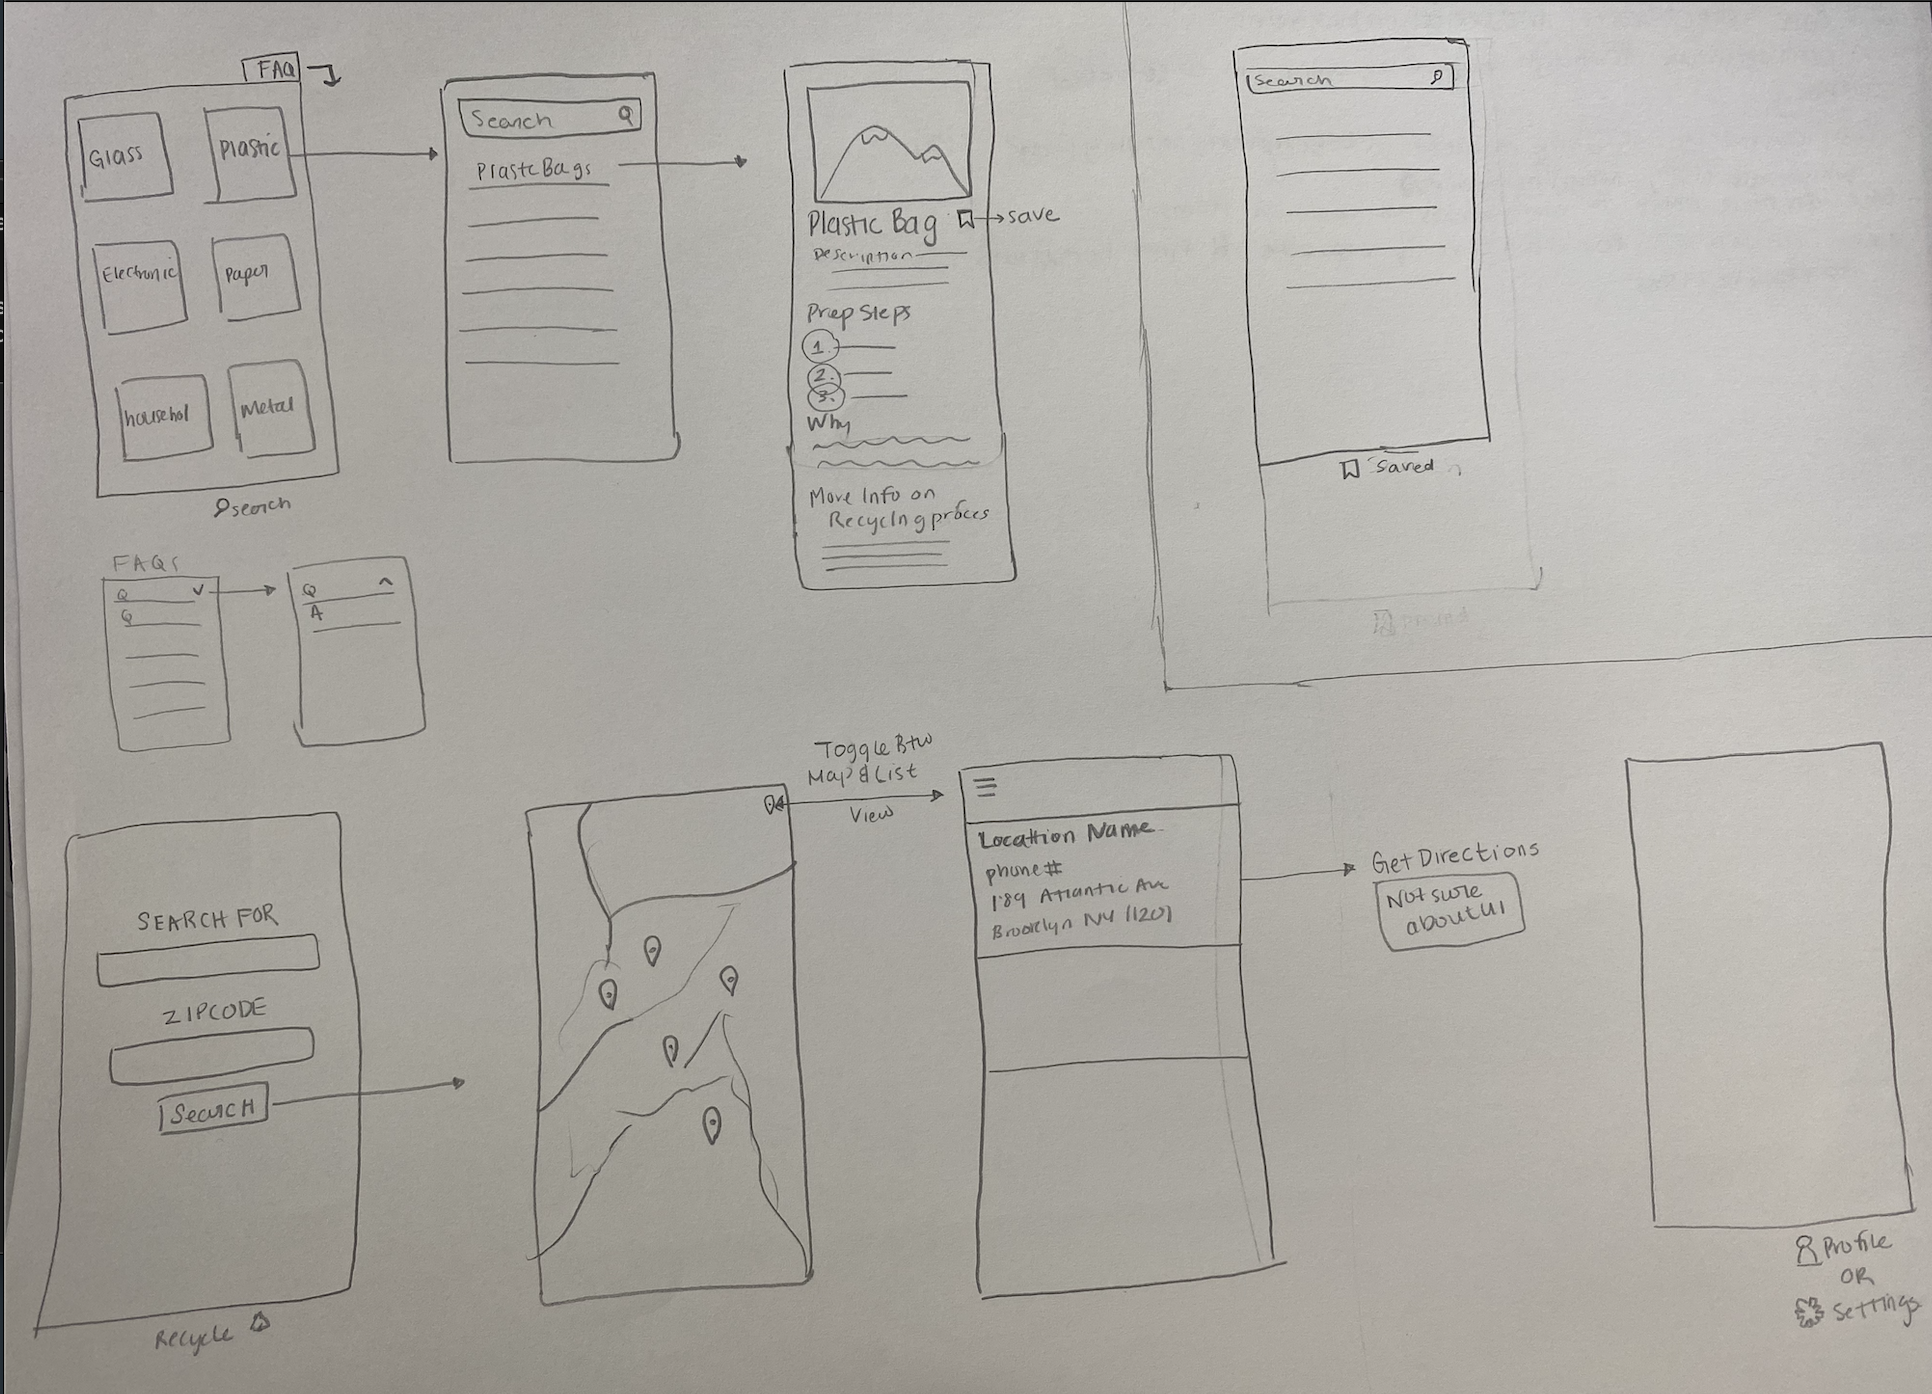 FAQ
Glass
Plastic
Electronic
Paper
househol
Metal
search
Search
Plastc Bags
Plastic Bag
save
Description
Prep Steps
1.
2.
3.
Why
More Info on
Recycling proces
Search
Saved
FAQs
Q
Q
Q
A
SEARCH FOR
ZIPCODE
SearcH
Recycle
Toggle Btw
Map & List
View
Locattion Name
phone #
189 Atlantic Ave
Brooklyn NY 11201
Get Directions
Not sure
about UI
Profile
OR
Settings